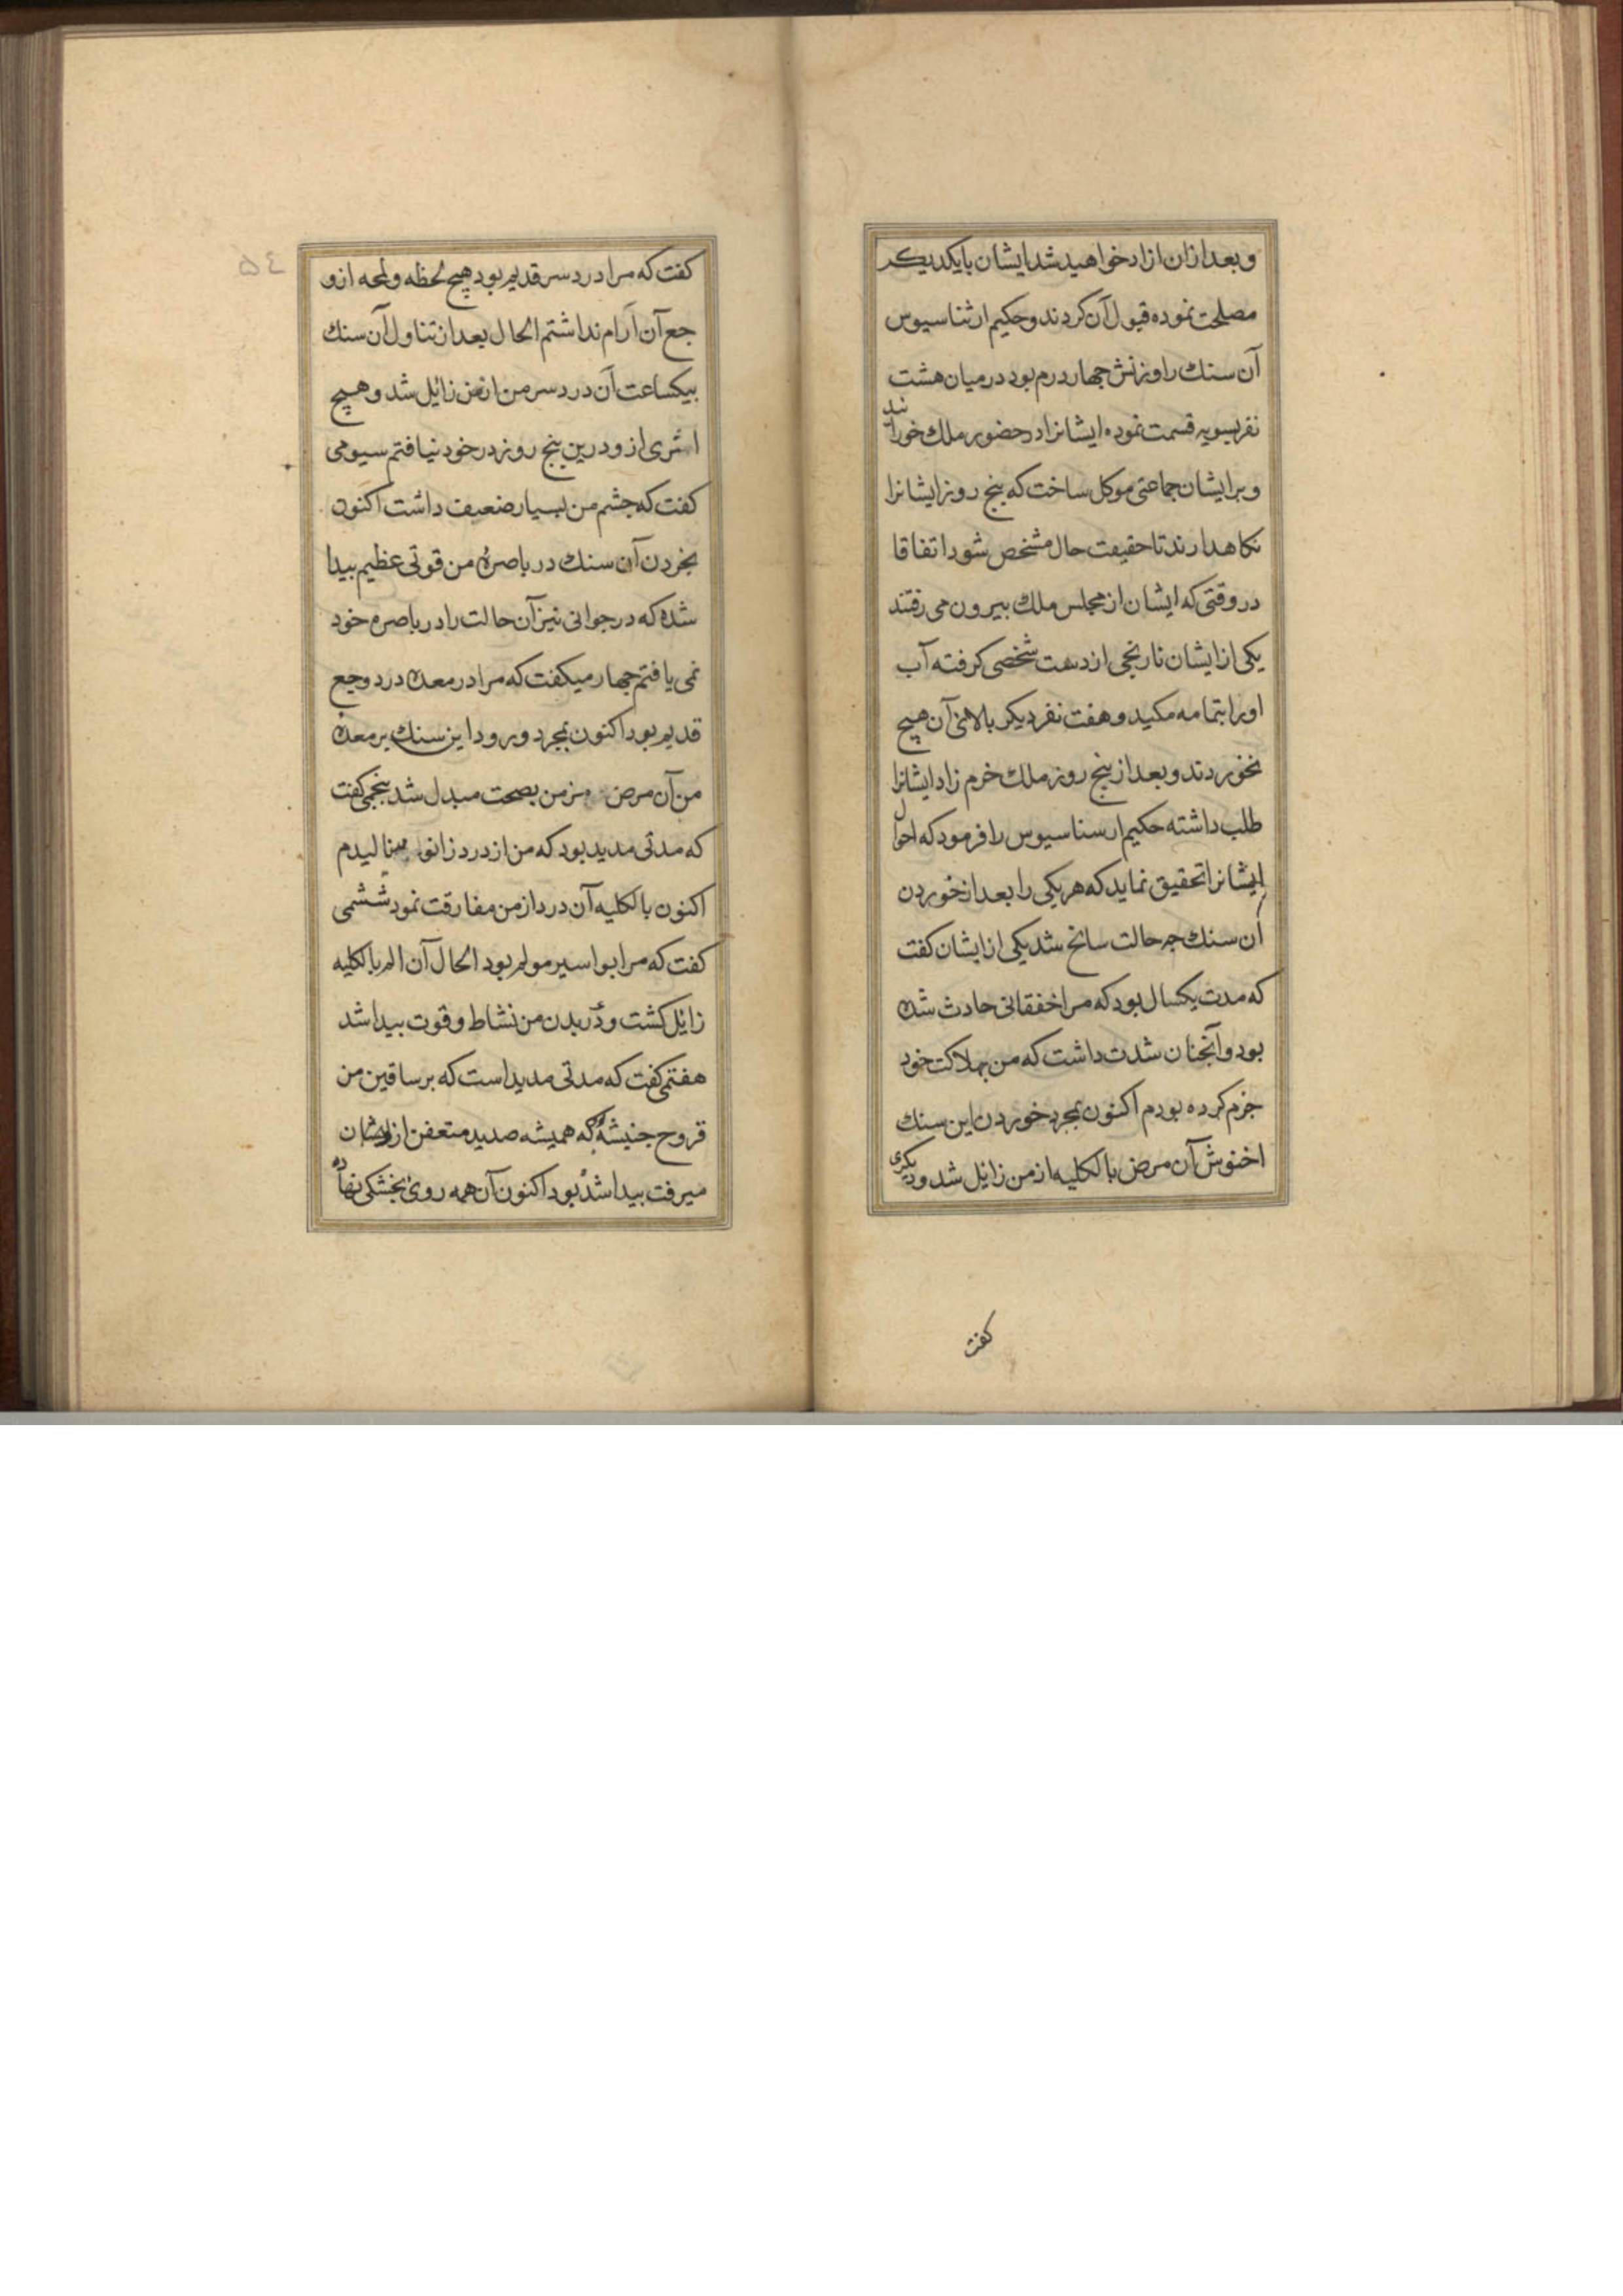 وبعد ازان ازاد خواهید شد ایشان بایکدیکر
مصلحت نموده قبول آن کردند وحکیم ارثناسیوس
آن سنك را وزنش جهار درم بود در میان هشت
نفر بسویه قسمت نموده ایشانرا در حضور ملك خورانید
وبرایشان جماعتی موکل ساخت که بنج روز ایشانرا
نکاهدارند تا حقیقت حال مشخص شود اتفاقا
در وقتی که ایشان از مجلس ملك بیرون می رفتند
یکی از ایشان نارنجی از دست شخصی کرفته آب
اورا بتمامه مکید وهفت نفر دیکر بالای آن هیچ
نخوردند وبعد از بنج روز ملك خرم زاد ایشانرا
طلب داشته حکیم ارسناسیوس را فرمود که احوال
ایشانرا تحقیق نماید که هریکی را بعد از خوردن
آن سنك جه حالت سانح شد یکی از ایشان کفت
که مدت یکسال بود که مرا خفقانی حادث شده
بود وآنجنان شدت داشت که من بهلاکت خود
جزم کرده بودم اکنون بمجرد خوردن این سنك
اخنوش آن مرض بالکلیه از من زایل شد ودیکری
کفت
٥٤
کفت که مرا درد سر قدیم بود هیچ لحظه ولمحه ازو
جع آن آرام نداشتم الحال بعد از تناول آن سنك
بیکساعت آن درد سر من ازمن زائل شد وهیچ
اثری ازو درین بنج روز در خود نیافتم سیومی
کفت که جشم من بسیار ضعیف داشت اکنون
بخردن آن سنك در باصرهٔ من قوتی عظیم بیدا
شده که در جوانی نیز آن حالت را در باصره خود
نمی یافتم جهارم میکفت که مرا در معده درد وجع
قدیم بود اکنون بمجرد ورود این سنك بر معده
من آن مرض مزمن بصحت مبدل شد بنجمی کفت
که مدتی مدید بود که من از درد زانو مینالیدم
اکنون بالکلیه آن درد از من مفارقت نمود ششمی
کفت که مرا بواسیر مولم بود الحال آن الم بالکلیه
زائل کشت ودر بدن من نشاط وقوت بیدا شد
هفتمی کفت که مدتی مدید است که بر ساقین من
قروح خبیثهٔ که همیشه صدید متعفن از ایشان
میرفت بیدا شده بود اکنون آن همه روی بخشکی نهاده